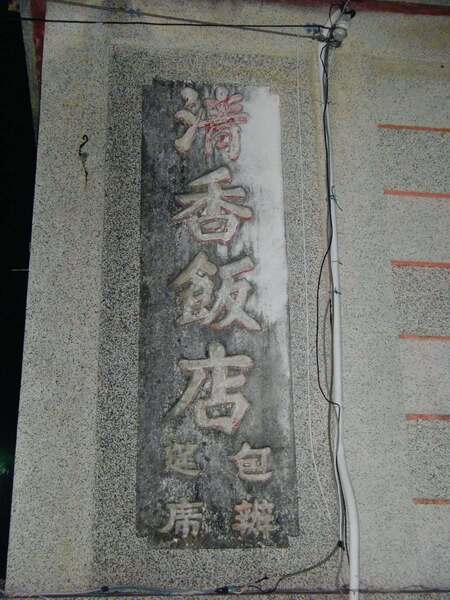 清香飯店
包辦
筵席